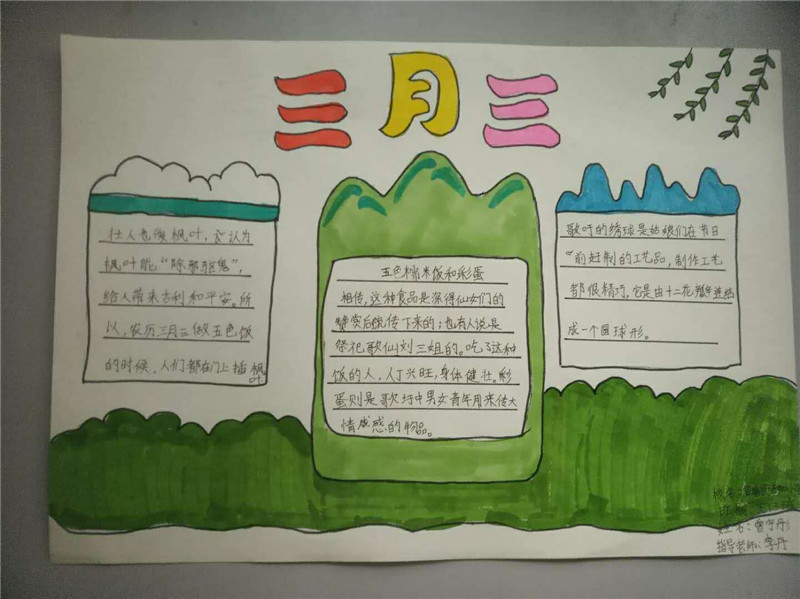 三月三
壮人也敬枫叶，认为
枫叶能“除邪驱鬼”，
给人带来吉利和平安。所
以，农历三月三做五色饭
的时候，人们都在门上插枫叶
五色糯米饭和彩蛋
相传，这种食品是深得仙女们的
赞赏后流传下来的；也有人说是
祭祀歌仙刘三姐的。吃了这种
饭的人，人丁兴旺，身体健壮。彩
蛋则是歌圩中男女青年用来传大
情成感的物品。
歌圩的绣球是姑娘们在节日
前赶制的工艺品，制作工艺
都很精巧，它是由十二花瓣连结
成一个圆球形。
校名：
班级：
姓名：
指导老师：